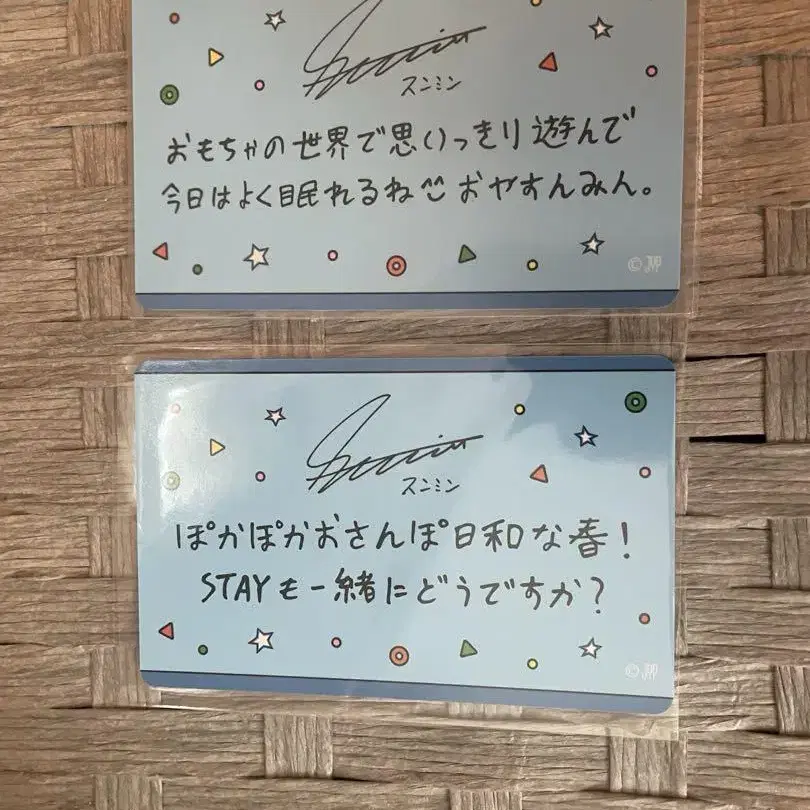 スンミン
おもちゃの世界で思いっきり遊んで
今日はよく眠れるね^^ おやすんみん。
© JYP
スンミン
ぽかぽかおさんぽ日和な春!
STAYも一緒にどうですか?
© JYP